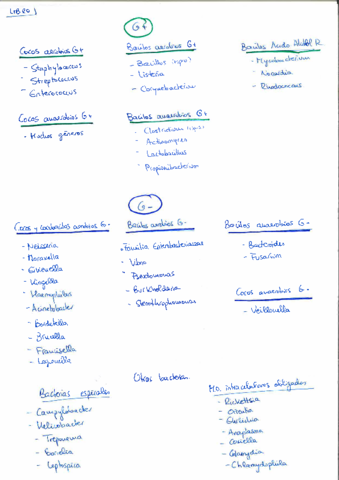 LIBRO 1
G+
Cocos aerobios G+
- Staphylococcus
- Streptococcus
- Enterococcus
Bacilos aerobios G+
- Bacillus (espor)
- Listeria
- Corynebacterium
Bacilos Acido Alcohol R.
- Mycobacterium
- Nocardia
- Rhodococcus
Cocos anaerobios G+
- Muchos géneros
Bacilos anaerobios G+
- Clostridium (espor)
- Actinomyces
- Lactobacillus
- Propionibacterium
G-
Cocos y cocobacilos aerobios G-
- Neisseria
- Moraxella
- Eikenella
- Kingella
- Haemophilus
- Acinetobacter
- Bordetella
- Brucella
- Francisella
- Legionella
Bacilos aerobios G-
- Familia Enterobacteriaceae
- Vibrio
- Pseudomonas
- Burkholderia
- Stenotrophomonas
Bacilos anaerobios G-
- Bacteroides
- Fusarium
Cocos anaerobios G-
- Veillonella
Otras bacterias
Bacterias espirales
- Campylobacter
- Helicobacter
- Treponema
- Borrelia
- Leptospira
MO. intracelulares obligados
- Rickettsia
- Orientia
- Ehrlichia
- Anaplasma
- Coxiella
- Chlamydia
- Chlamydophila